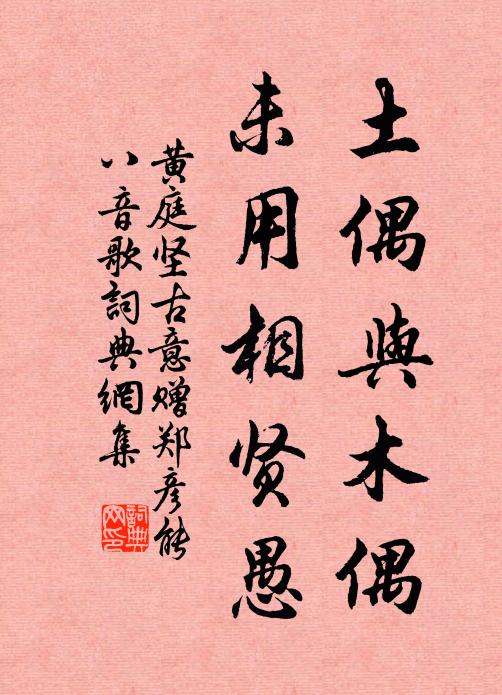 土偶與木偶
未用相贤愚
黄庭坚古意赠郑彦能
八音歌詞典網集
詞典網印